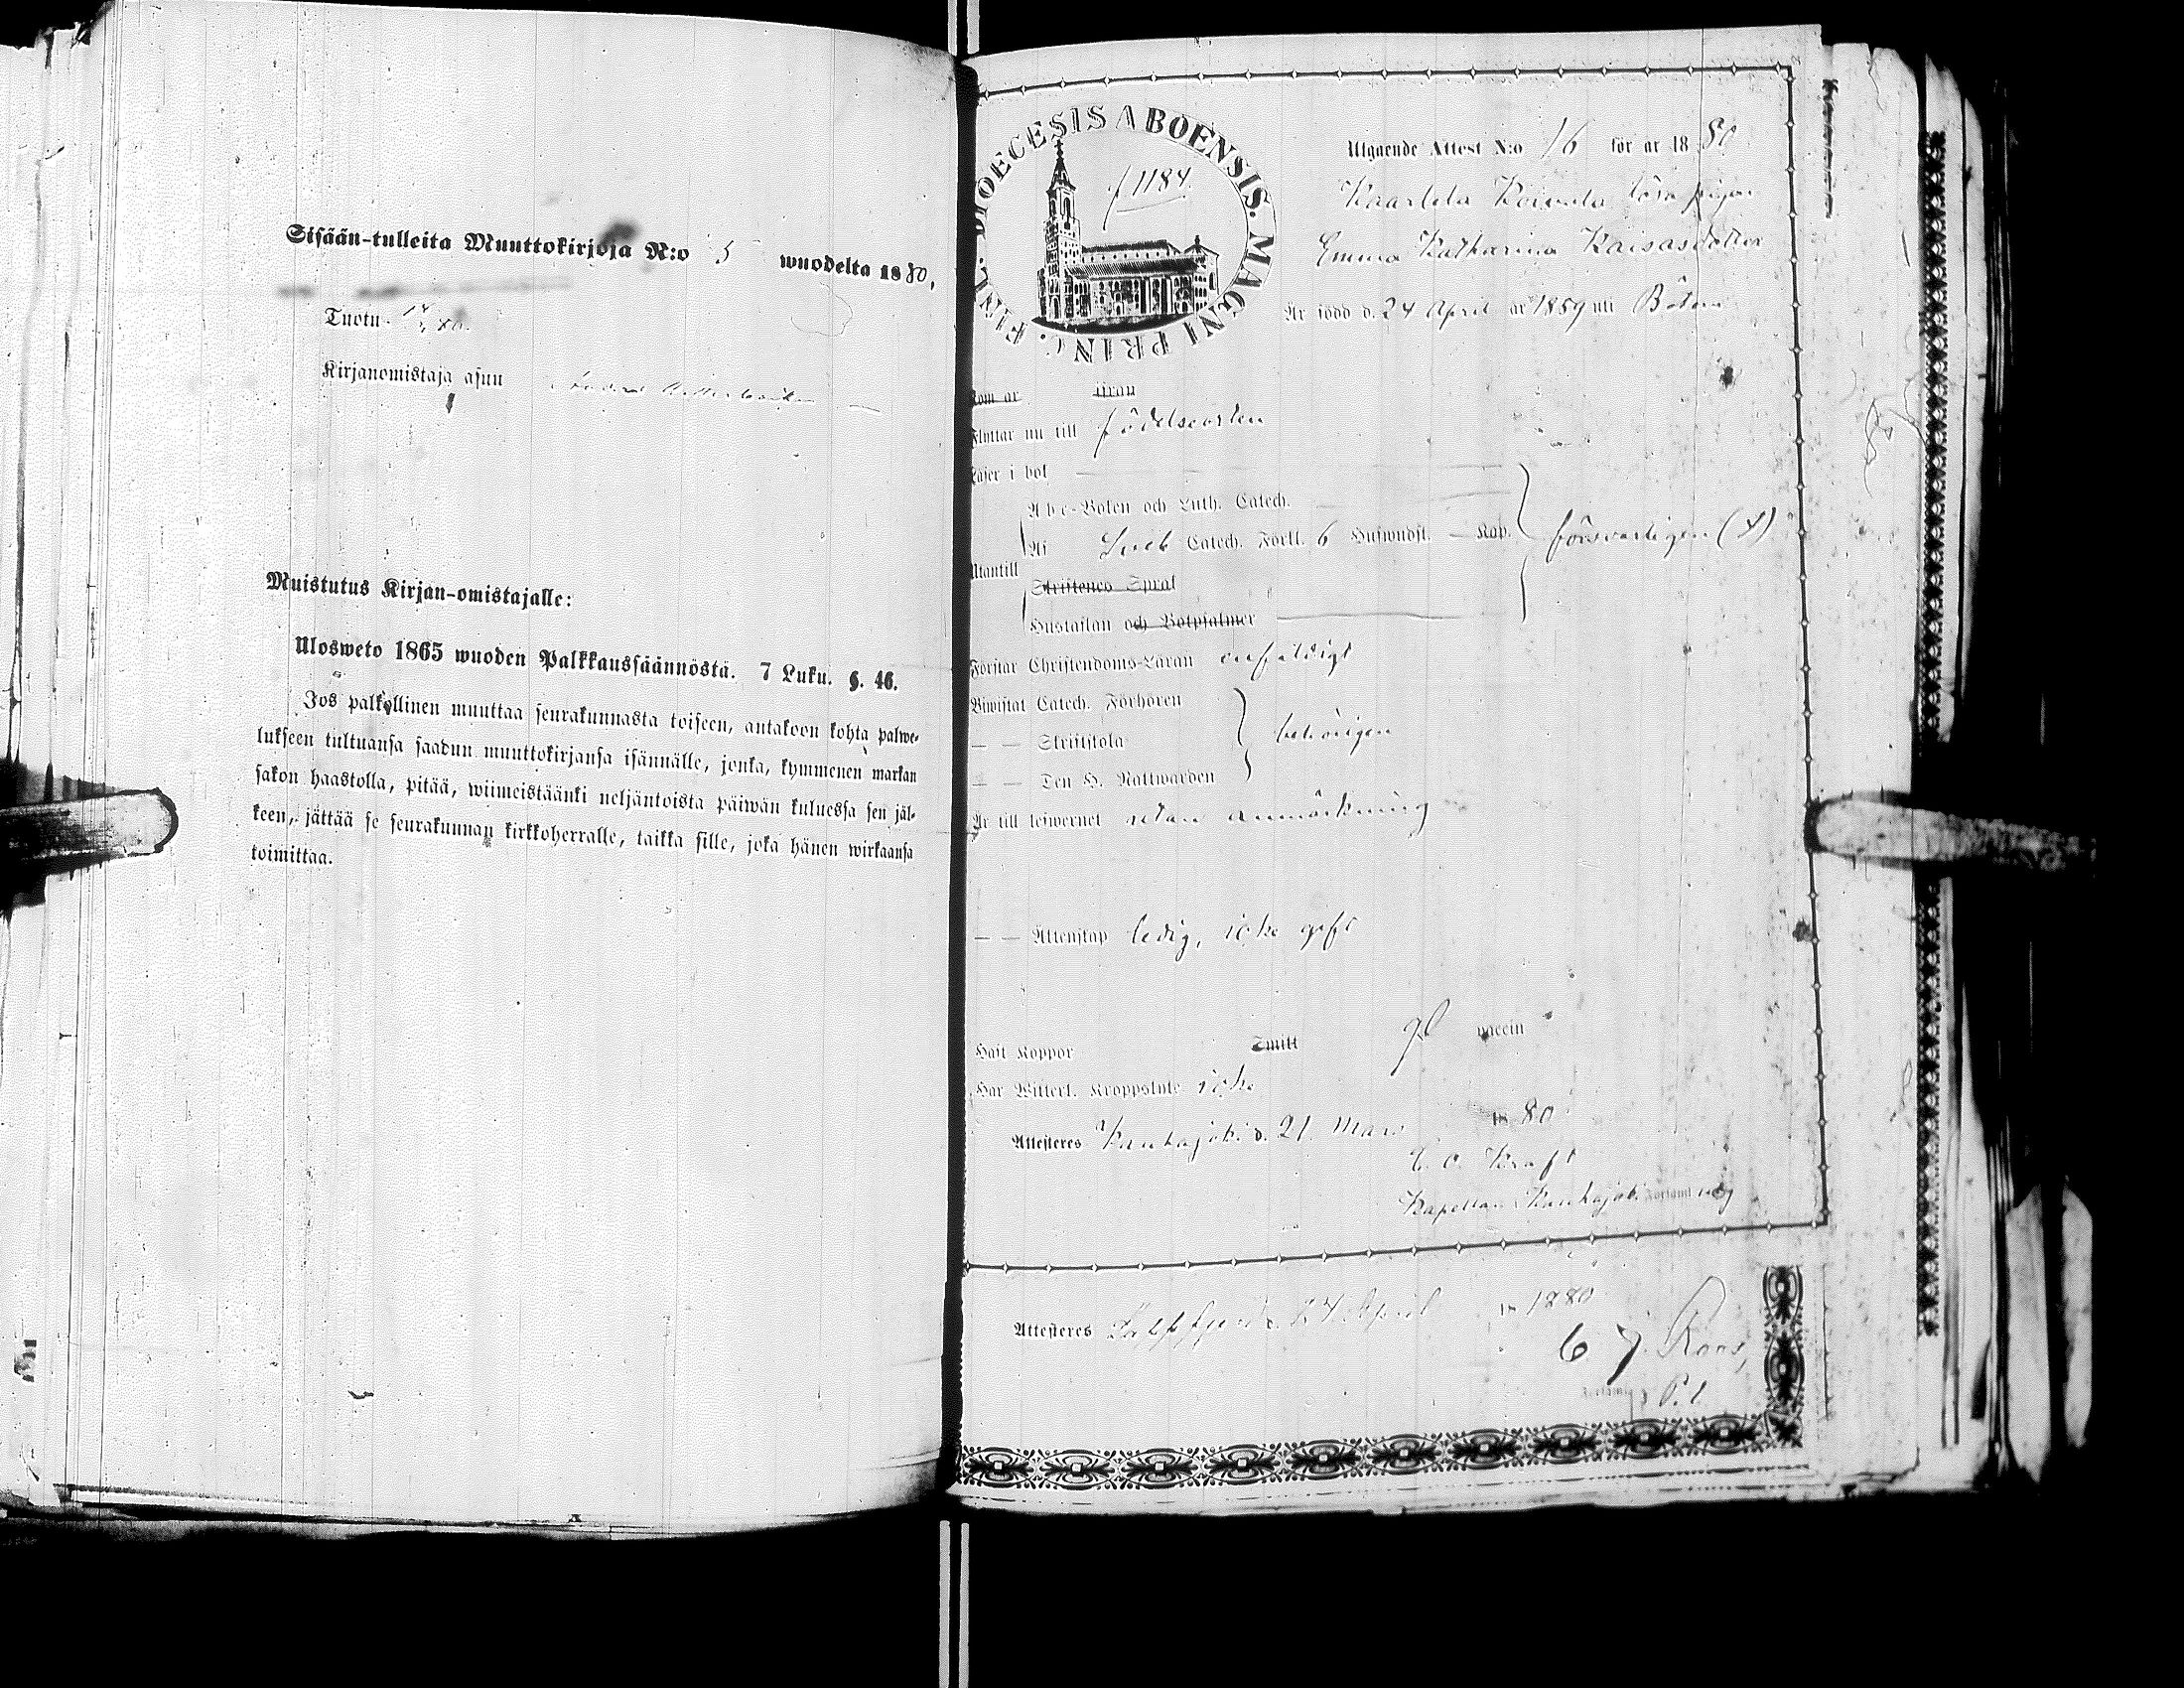 Sisään-tulleita Muuttokirjoja N:o 5 wuodelta 1880,
Tuotu
Kirjanomistaja asuu
Muistutus Kirjan-omistajalle:
Ulosweto 1865 wuoden Palkkaussäännöstä. 7 Luku. §. 46.
Jos palkollinen muuttaa seurakunnasta toiseen, antakoon kohta palwe-
lukseen tultuansa saadun muuttokirjansa isännälle, jonka, kymmenen markan
sakon haastolla, pitää, wiimeistäänki neljäntoista päiwän kuluessa sen jäl-
keen, jättää se seurakunnan kirkkoherralle, taikka sille, joka hänen wirkaansa
toimittaa.
DIOECESIS ABOENSIS. MAGNI PRINC. FINL.
f 1184.
Utgaende Attest N:o 16 för ar 1880
Kaarlela Koivula lösa pigan
Emma Katharina Kaisasdotter
Är född d. 24 April ar 1859 uti Bötom
Kom ar ifran
Flyttar nu till födelseorten
Läser i bok
Abc-Boken och Luth. Catech.
Utantill
Af Sveb Catech. Förkl. 6 Huswudst. — Kap. försvarligen (4)
Skriftenes Sprak
Hustaflan och Botpsalmer
Förstar Christendoms-Läran enfaldigt
Biwistat Catech. Förhören
— — Skriftskola behörigen
— — Den H. Nattwarden
Är till lefwernet utan anmärkning
— — Ächtenskap ledig, icke gift
Haft Koppor Smitt vaccin
Har Witterl. Kroppslyte icke
Attesteres Kauhajoki d. 21 Mars 1880
Kraft
Kapellan i Kauhajoki Församling
Attesteres d. 24 April 1880
Roos,
Församling P. l.